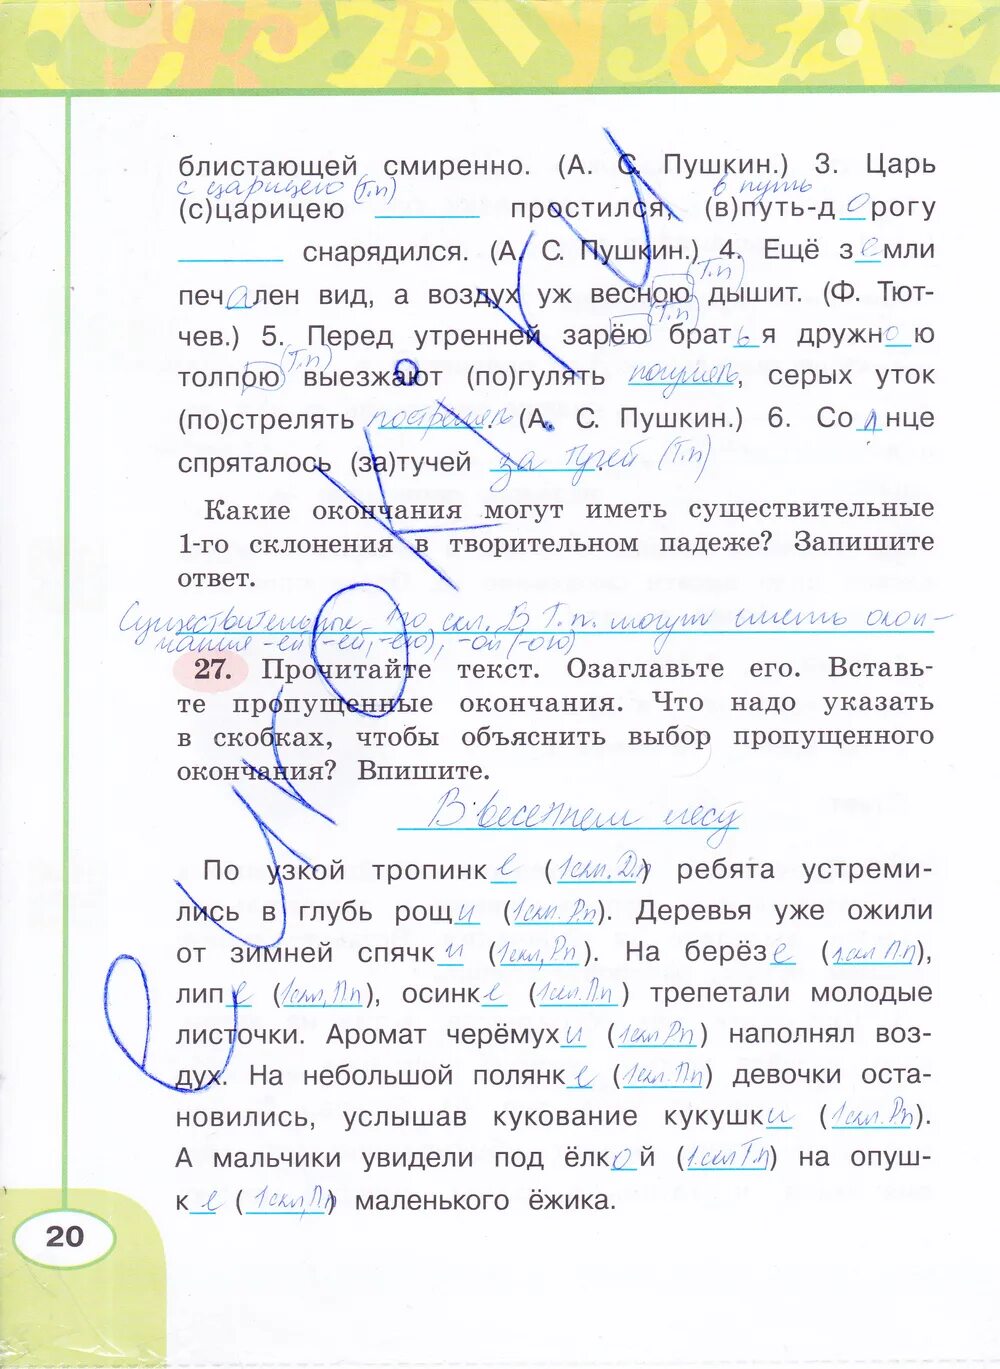 блистающей смиренно. (А. С. Пушкин.) 3. Царь
с царицею (Т.п) в путь
(с)царицею простился, (в)путь-дорогу
снарядился. (А. С. Пушкин.) 4. Ещё земли
(Т.п)
печален вид, а воздух уж весною дышит. (Ф. Тют-
(Т.п)
чев.) 5. Перед утренней зарёю братья дружною
(Т.п)
толпою выезжают (по)гулять погулять, серых уток
(по)стрелять пострелять. (А. С. Пушкин.) 6. Солнце
спряталось (за)тучей за тучей (Т.п).
Какие окончания могут иметь существительные
1-го склонения в творительном падеже? Запишите
ответ.
Существительные 1го скл. В Т.п. могут иметь окон-
чания -ей (-ёй, -ею), -ой (-ою)
27. Прочитайте текст. Озаглавьте его. Вставь-
те пропущенные окончания. Что надо указать
в скобках, чтобы объяснить выбор пропущенного
окончания? Впишите.
В весеннем лесу
По узкой тропинке (1скл. Д.п) ребята устреми-
лись в глубь рощи (1скл. Р.п). Деревья уже ожили
от зимней спячки (1скл, Р.п). На берёзе (1скл П.п),
липе (1скл, П.п), осинке (1скл. П.п) трепетали молодые
листочки. Аромат черёмухи (1скл Р.п) наполнял воз-
дух. На небольшой полянке (1скл. П.п) девочки оста-
новились, услышав кукование кукушки (1скл. Р.п).
А мальчики увидели под ёлкой (1.скл Т.п) на опуш-
ке (1скл, П.п) маленького ёжика.
20